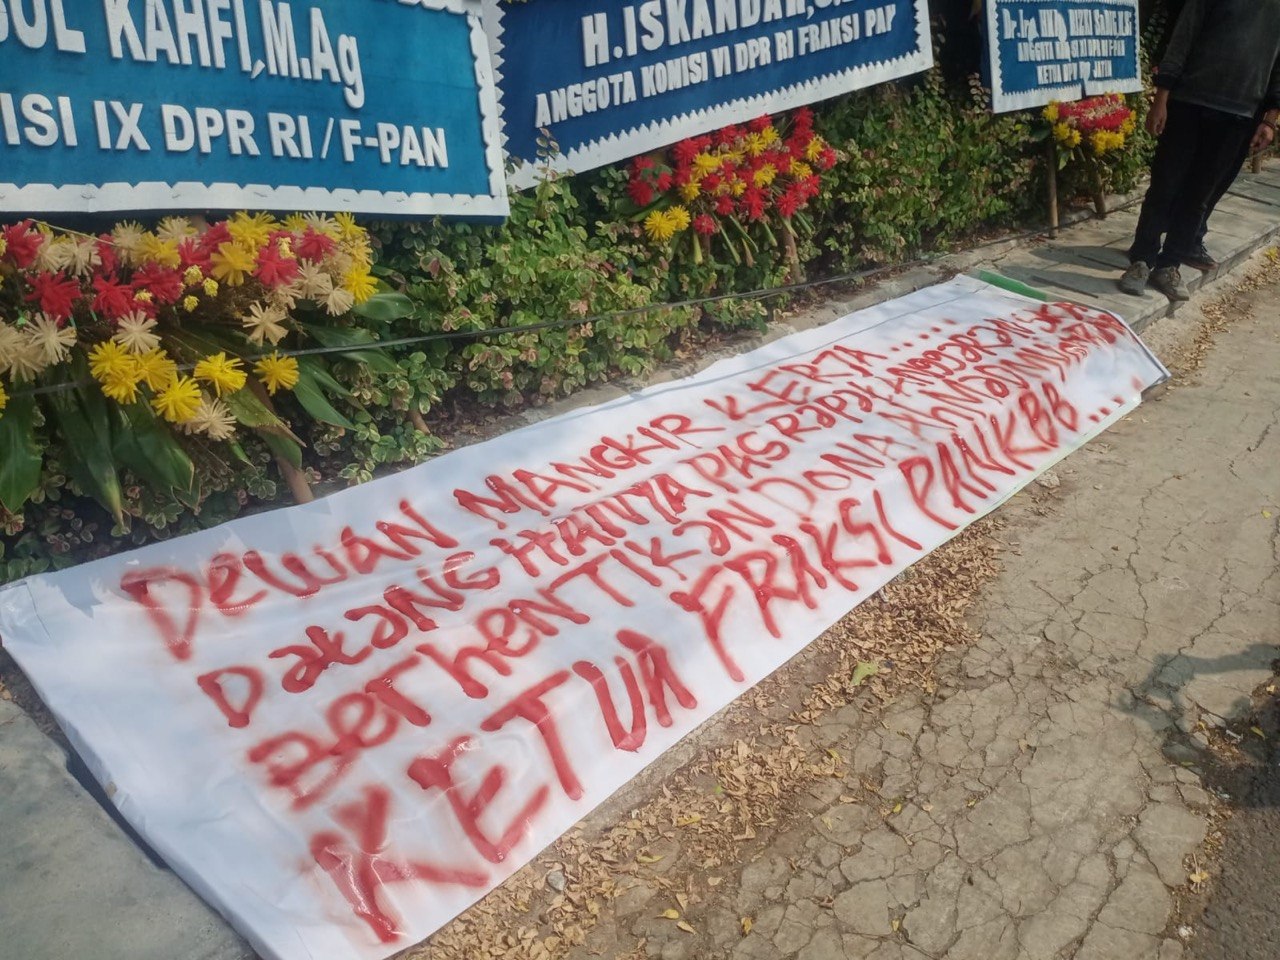 GUL KAHFI, M.Ag
ISI IX DPR RI / F-PAN
H. ISKANDAR, S.
ANGGOTA KOMISI VI DPR RI FRAKSI PAP
ANGGOTA KOMISI VI DPR RI F-PAN
KETUA DPW JATIM
DeWAN MANGKIR KERJA.....
DataNG HANYA PAS RaPat ANGGaRaN
BerHenTIKaN DONA
KETUA FRAKSI PANKBB...